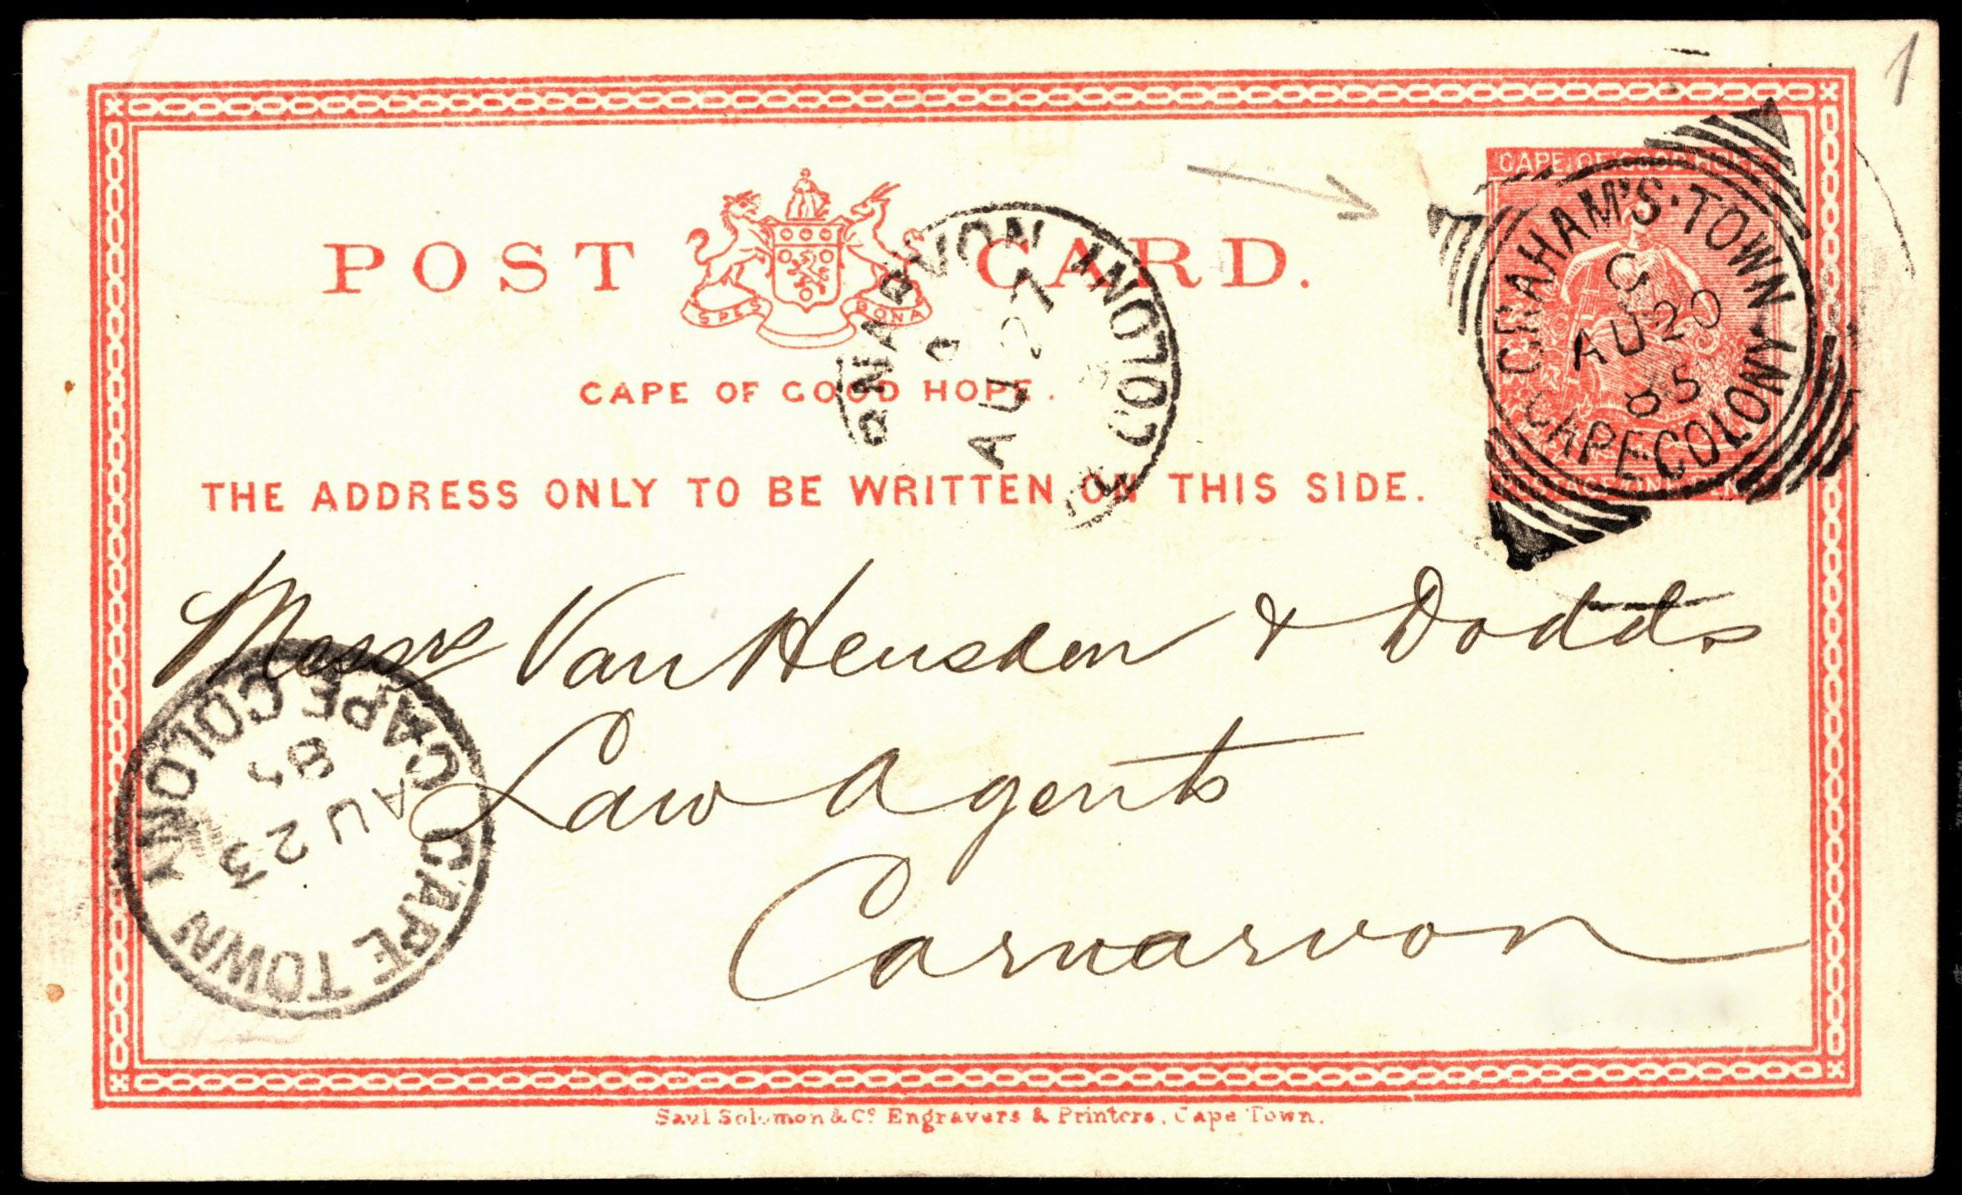 1
CAPE OF GOOD HOPE
POST CARD.
SPES BONA
CAPE OF GOOD HOPE.
THE ADDRESS ONLY TO BE WRITTEN ON THIS SIDE.
GRAHAM'S·TOWN
AU 20
85
CAPE COLONY
CARNARVON
AU 27
COLONY
Messrs Van Heusden & Dodds
Law Agents
Carnarvon
CAPE TOWN
AU 23
85
CAPE COLONY
Saul Solomon & Co. Engravers & Printers, Cape Town.